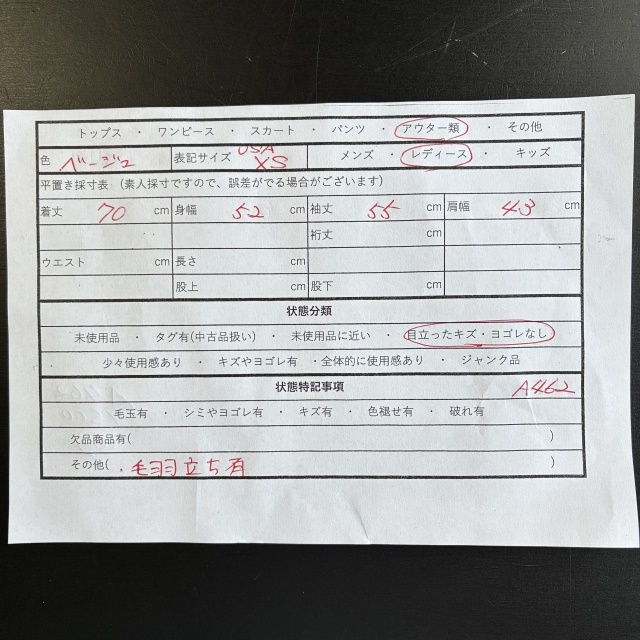 トップス ・ ワンピース ・ スカート ・ パンツ ・ アウター類 ・ その他
色 ベージュ 表記サイズ USA XS メンズ ・ レディース ・ キッズ
平置き採寸表 (素人採寸ですので、誤差がでる場合がございます)
着丈 70 cm 身幅 52 cm 袖丈 55 cm 肩幅 43 cm
裄丈 cm
ウエスト cm 長さ cm
股上 cm 股下 cm
状態分類
未使用品 ・ タグ有(中古品扱い) ・ 未使用品に近い ・ 目立ったキズ・ヨゴレなし
少々使用感あり ・ キズやヨゴレ有 ・全体的に使用感あり ・ ジャンク品
状態特記事項 A462
毛玉有 ・ シミやヨゴレ有 ・ キズ有 ・ 色褪せ有 ・ 破れ有
欠品商品有( )
その他( ・毛羽立ち有 )